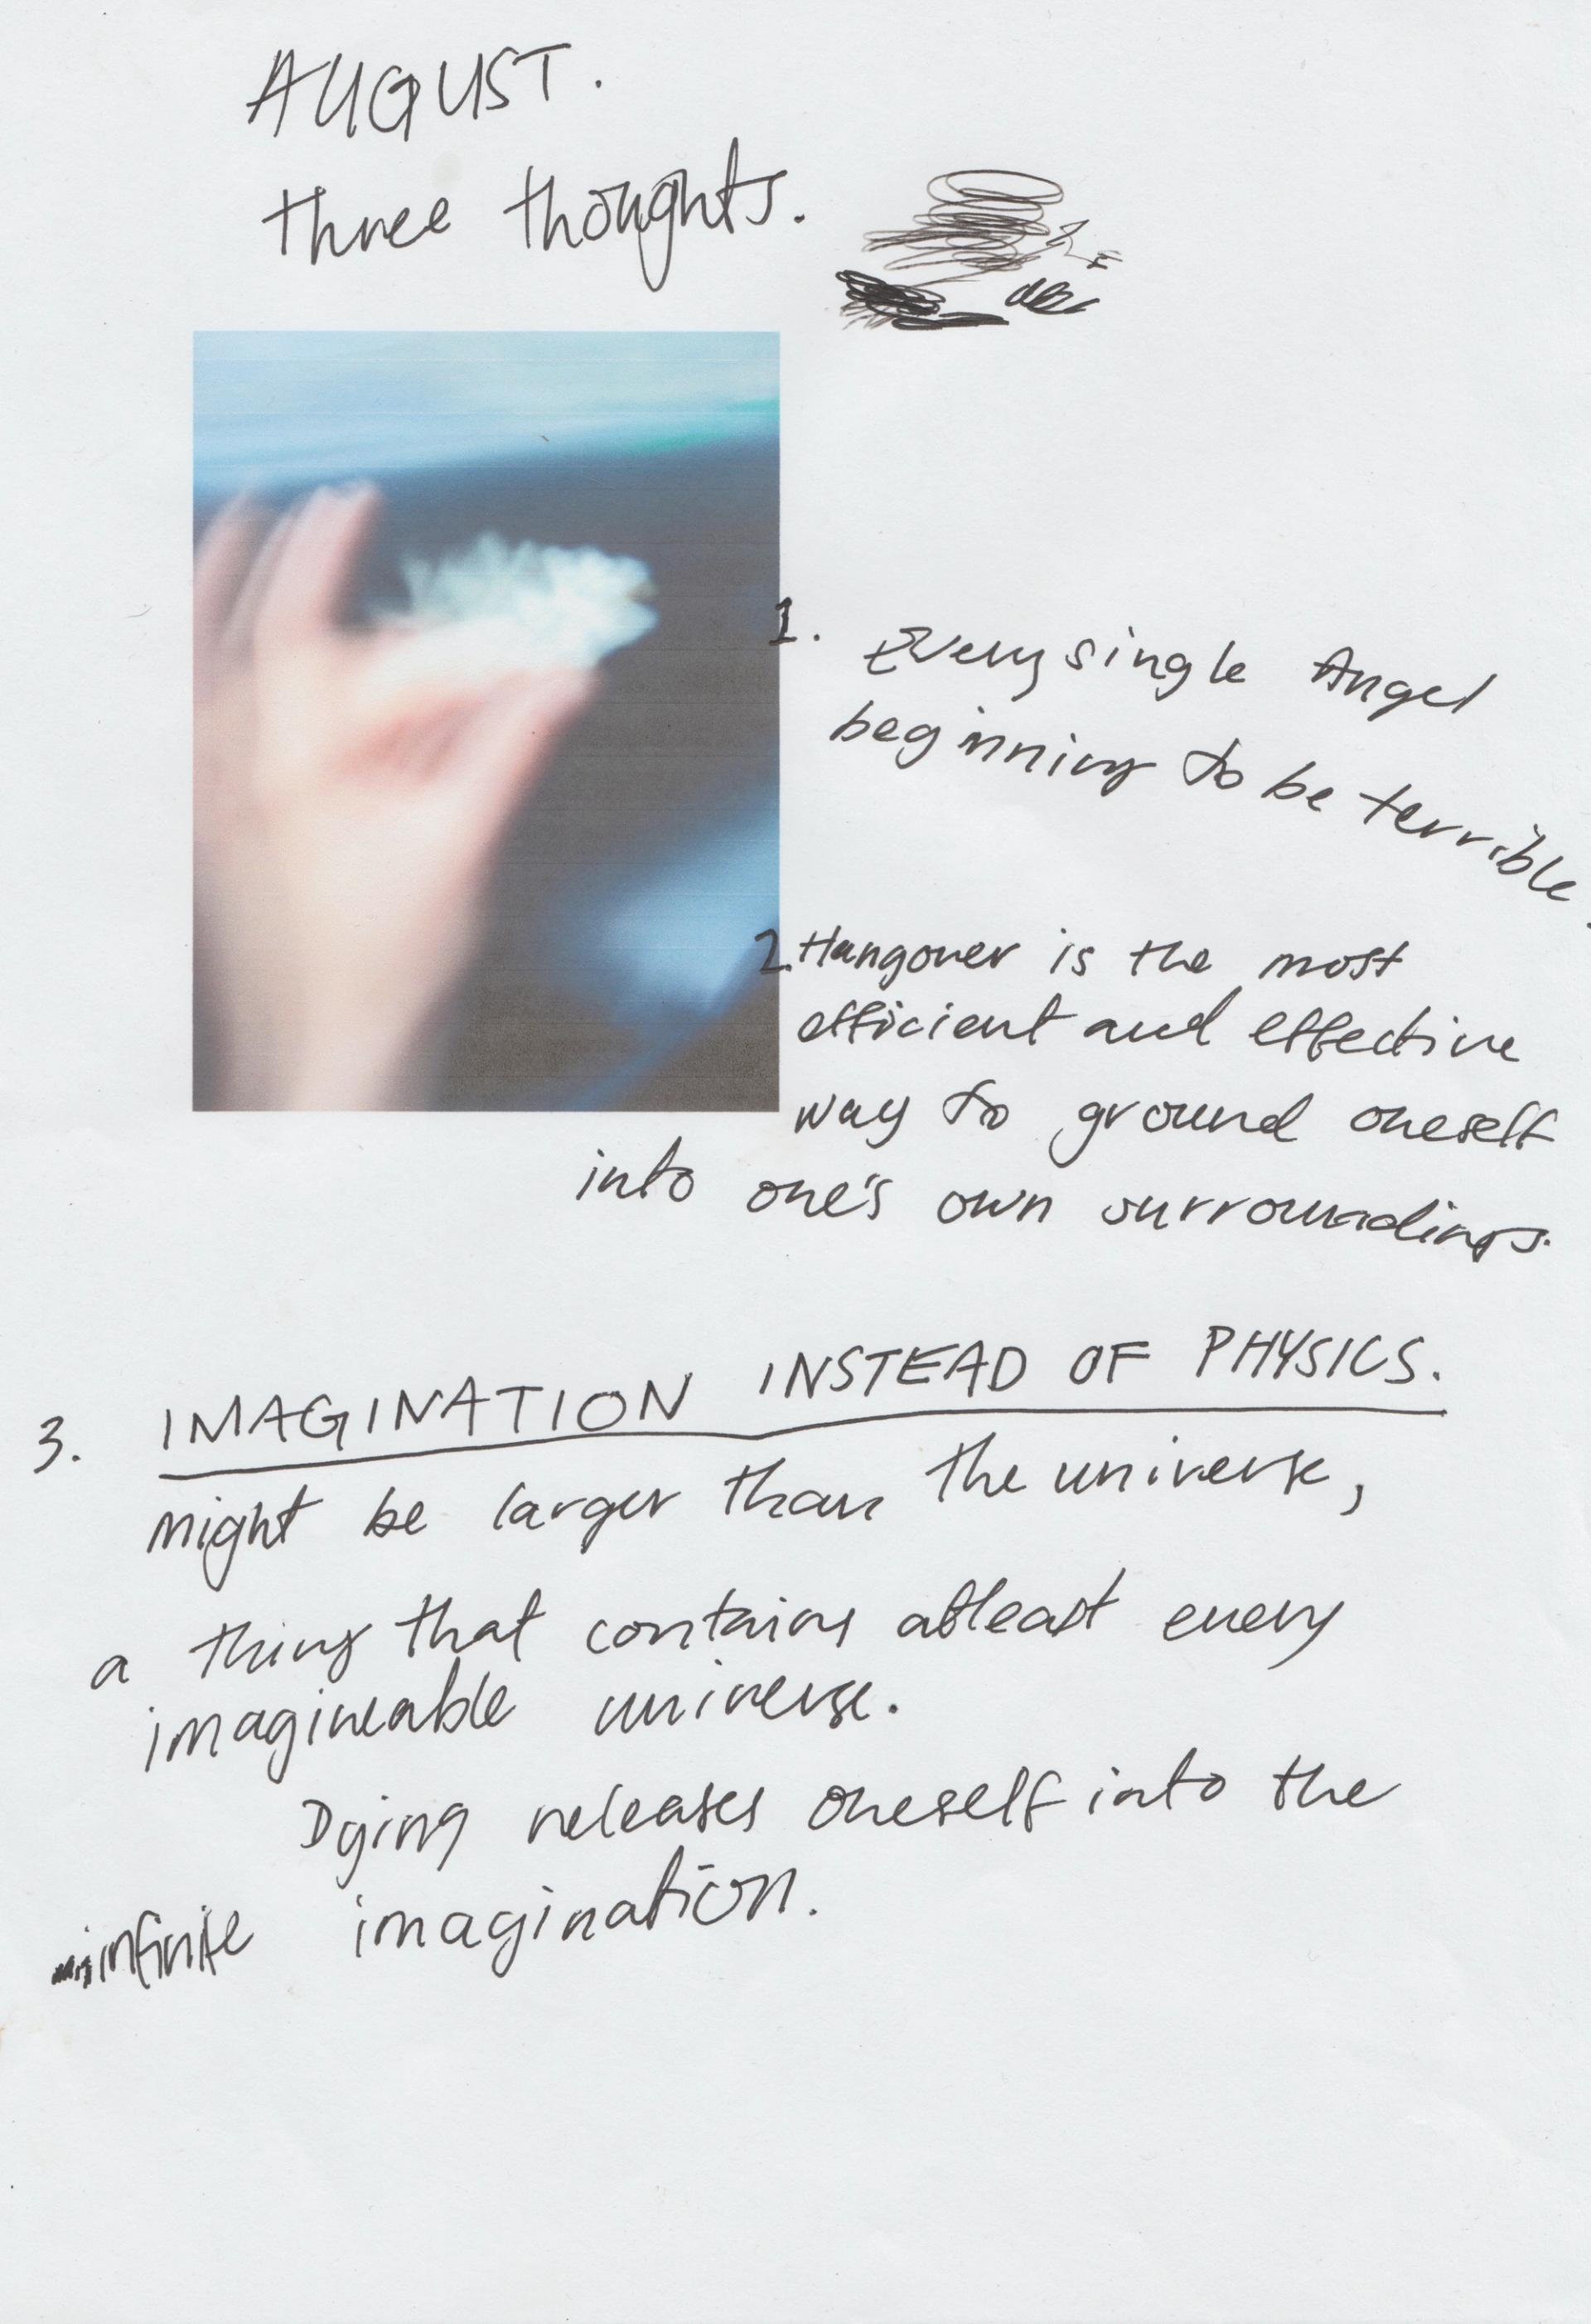 AUGUST.
three thoughts.
1. Every single Angel
beginning to be terrible.
2. Hangover is the most
efficient and effective
way to ground oneself
into one's own surroundings.
3. IMAGINATION INSTEAD OF PHYSICS.
might be larger than the universe,
a thing that contains atleast every
imagineable universe.
Dying releases oneself into the
infinite imagination.